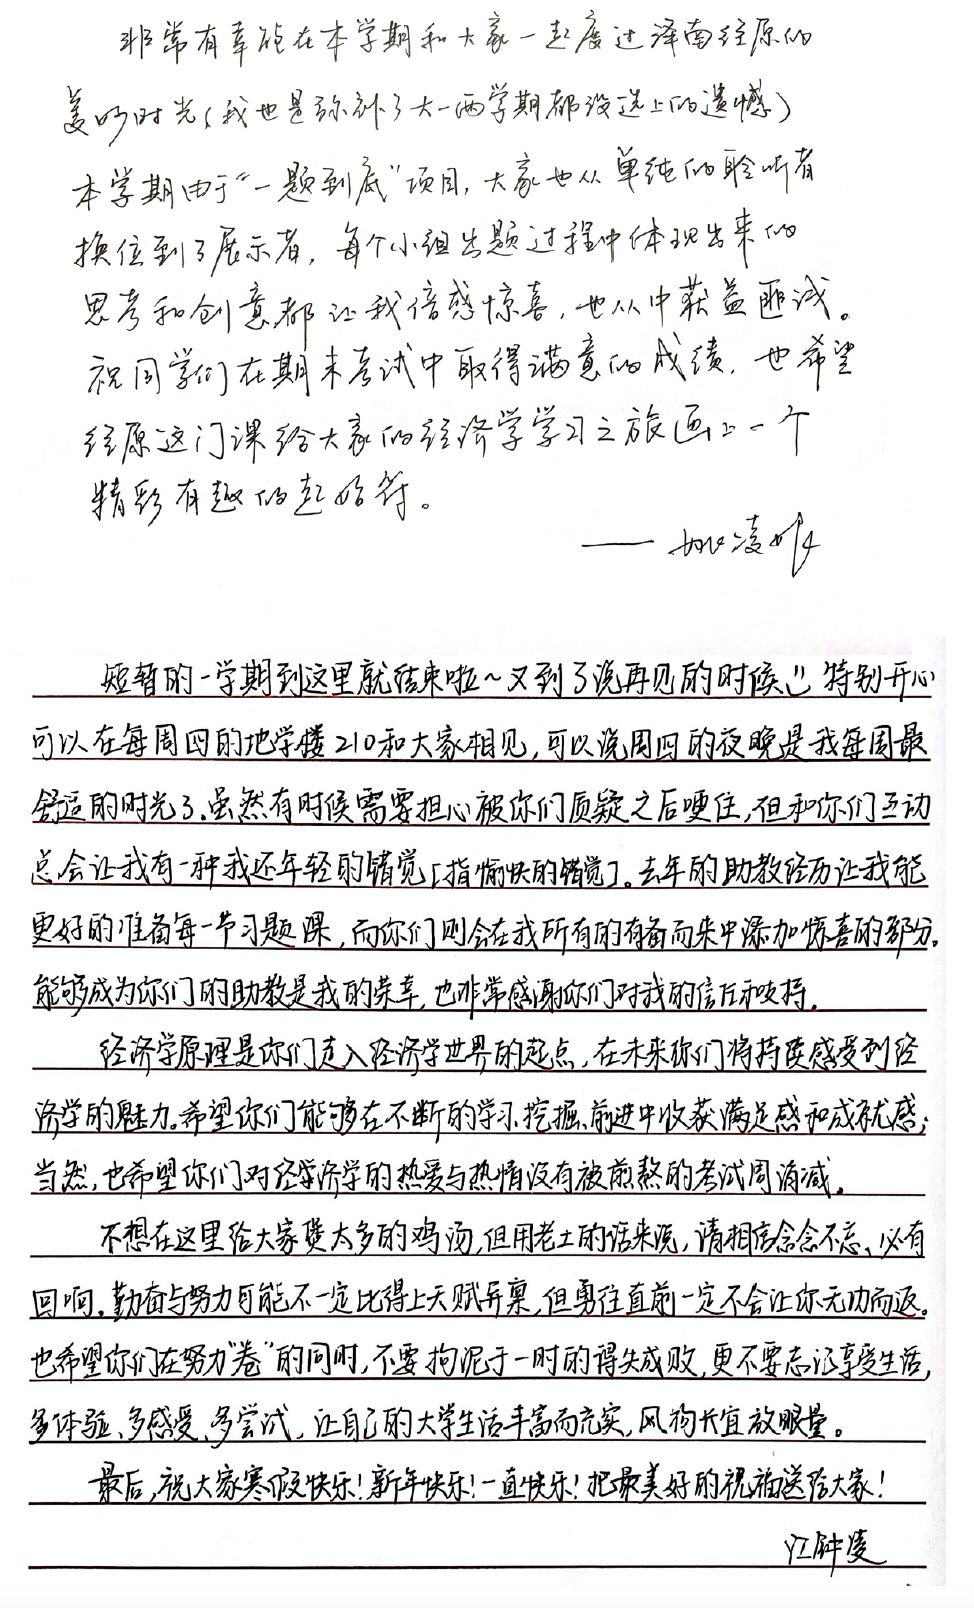 非常有幸能在本学期和大家一起度过泽南经原的
美妙时光（我也是弥补了大一两学期都没选上的遗憾）
本学期由于“一题到底”项目，大家也从单纯的聆听者
换位到了展示者，每个小组出题过程中体现出来的
思考和创意都让我倍感惊喜，也从中获益匪浅。
祝同学们在期末考试中取得满意的成绩，也希望
经原这门课给大家的经济学学习之旅画上一个
精彩有趣的起始符。
—— 姚凌
短暂的一学期到这里就结束啦~又到了说再见的时候 特别开心
可以在每周四的地学楼210和大家相见，可以说周四的夜晚是我每周最
舒适的时光了。虽然有时候需要担心被你们质疑之后哽住，但和你们互动
总会让我有一种我还年轻的错觉[指愉快的错觉]。去年的助教经历让我能
更好的准备每一节习题课，而你们则会在我所有的有备而来中添加惊喜的部分。
能够成为你们的助教是我的荣幸，也非常感谢你们对我的信任和支持。
经济学原理是你们走入经济学世界的起点，在未来你们将持续感受到经
济学的魅力。希望你们能够在不断的学习、挖掘、前进中收获满足感和成就感；
当然，也希望你们对经济学的热爱与热情没有被煎熬的考试周消减。
不想在这里给大家煲太多的鸡汤，但用老土的话来说，请相信念念不忘、必有
回响。勤奋与努力可能不一定比得上天赋异禀，但勇往直前一定不会让你无功而返。
也希望你们在努力“卷”的同时，不要拘泥于一时的得失成败，更不要忘记享受生活，
多体验、多感受、多尝试，让自己的大学生活丰富而充实，风物长宜放眼量。
最后，祝大家寒假快乐！新年快乐！一直快乐！把最美好的祝福送给大家！
江钟凌